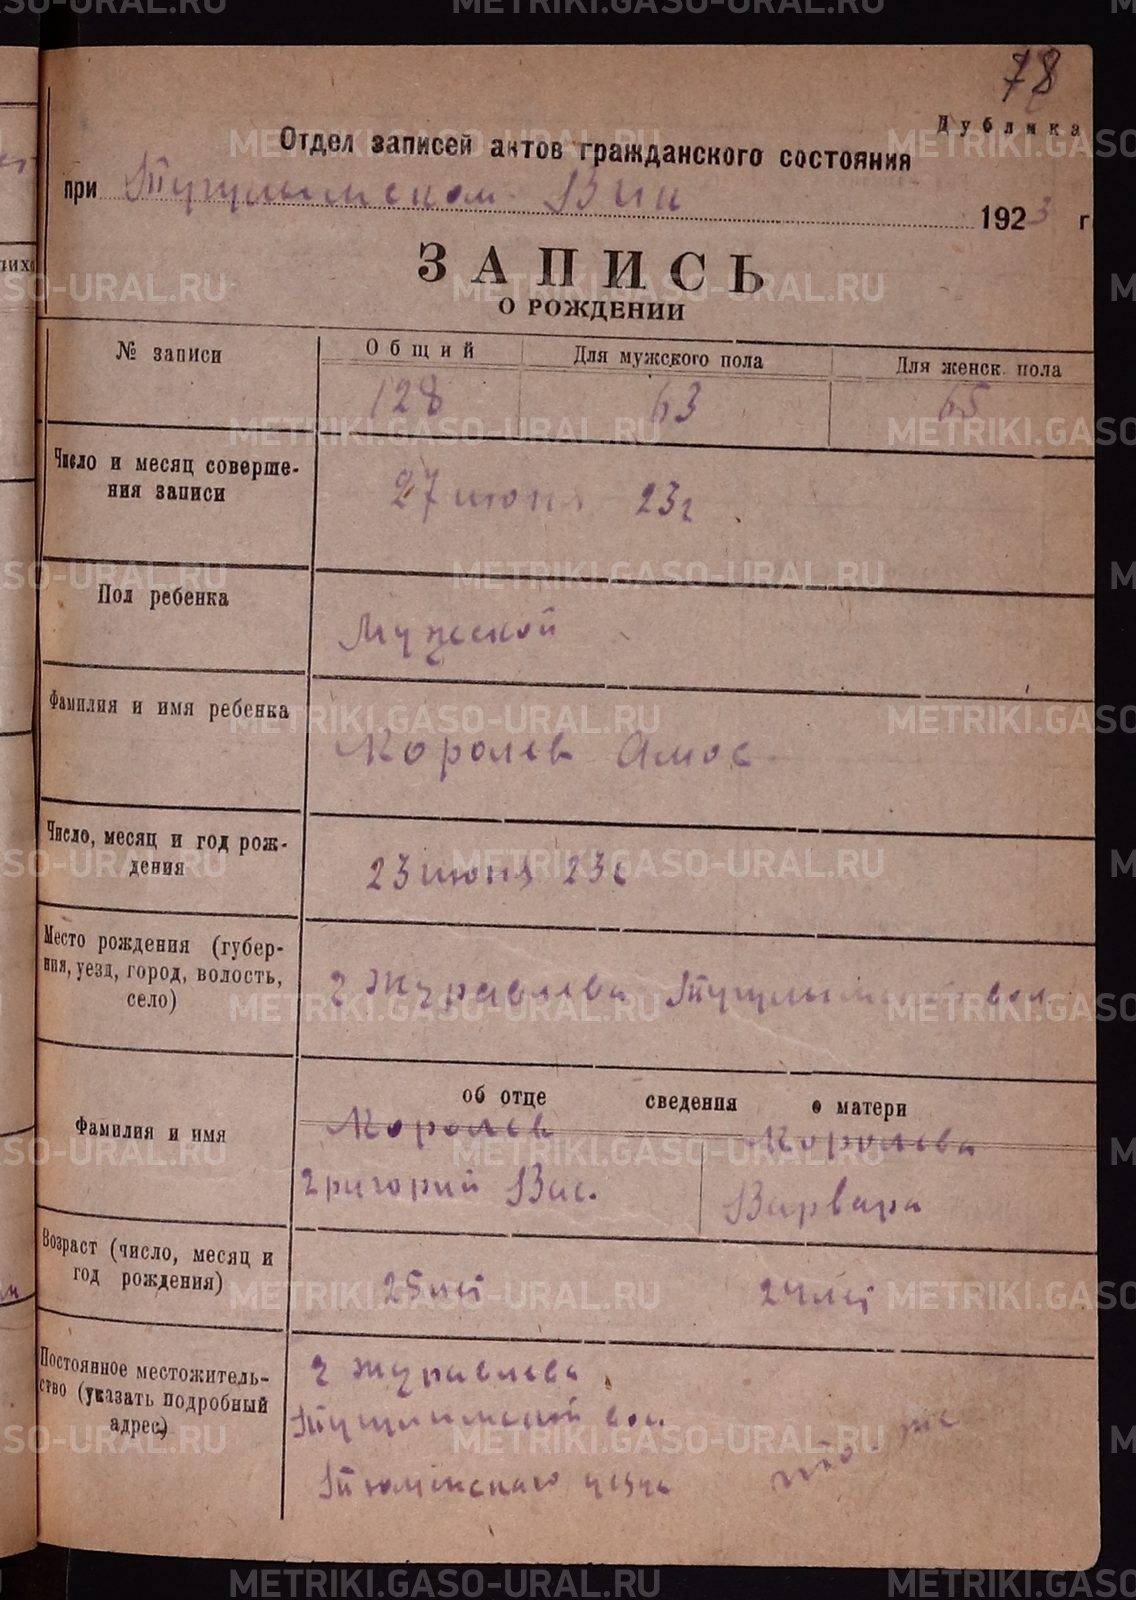 78
Дублика
Отдел записей актов гражданского состояния
при Тугулымском Вик 1923 г
ЗАПИСЬ
О РОЖДЕНИИ
№ записи
Общий Для мужского пола Для женск. пола
128 63 65
Число и месяц соверше-
ния записи
27 июня 23г
Пол ребенка
Мужской
Фамилия и имя ребенка
Королев Амос
Число, месяц и год рож-
дения
23 июня 23г
Место рождения (губер-
ния, уезд, город, волость,
село)
д Журавлева Тугулымской вол
об отце сведения о матери
Фамилия и имя
Королев Королева
Григорий Вас. Варвара
Возраст (число, месяц и
год рождения)
25 лет 24 лет
Постоянное местожитель-
ство (указать подробный
адрес)
д Журавлева
Тугулымской вол.
Тюменскаго уезда
то-же
METRIKI.GASO-URAL.RU